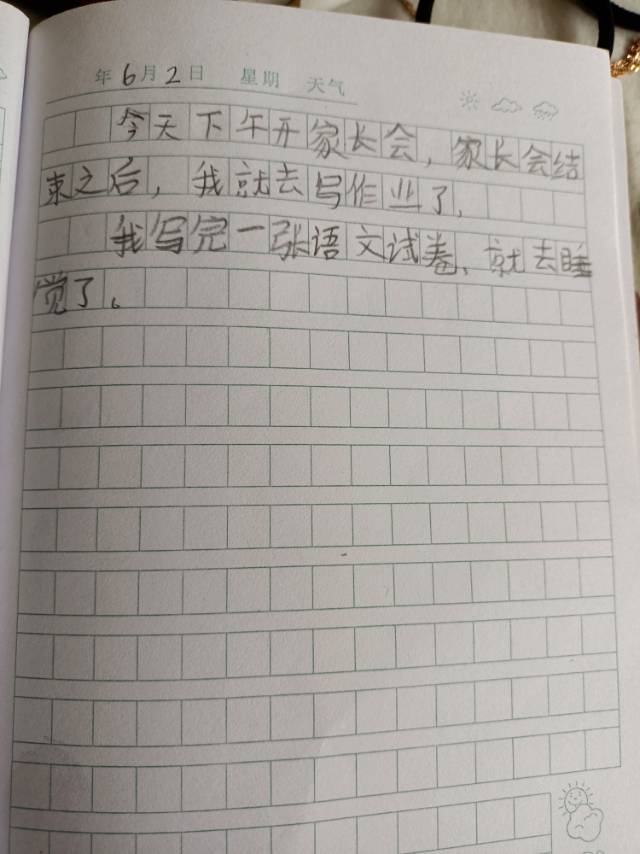 年6月2日 星期 天气
今天下午开家长会，家长会结
束之后，我就去写作业了，
我写完一张语文试卷、就去睡
觉了。